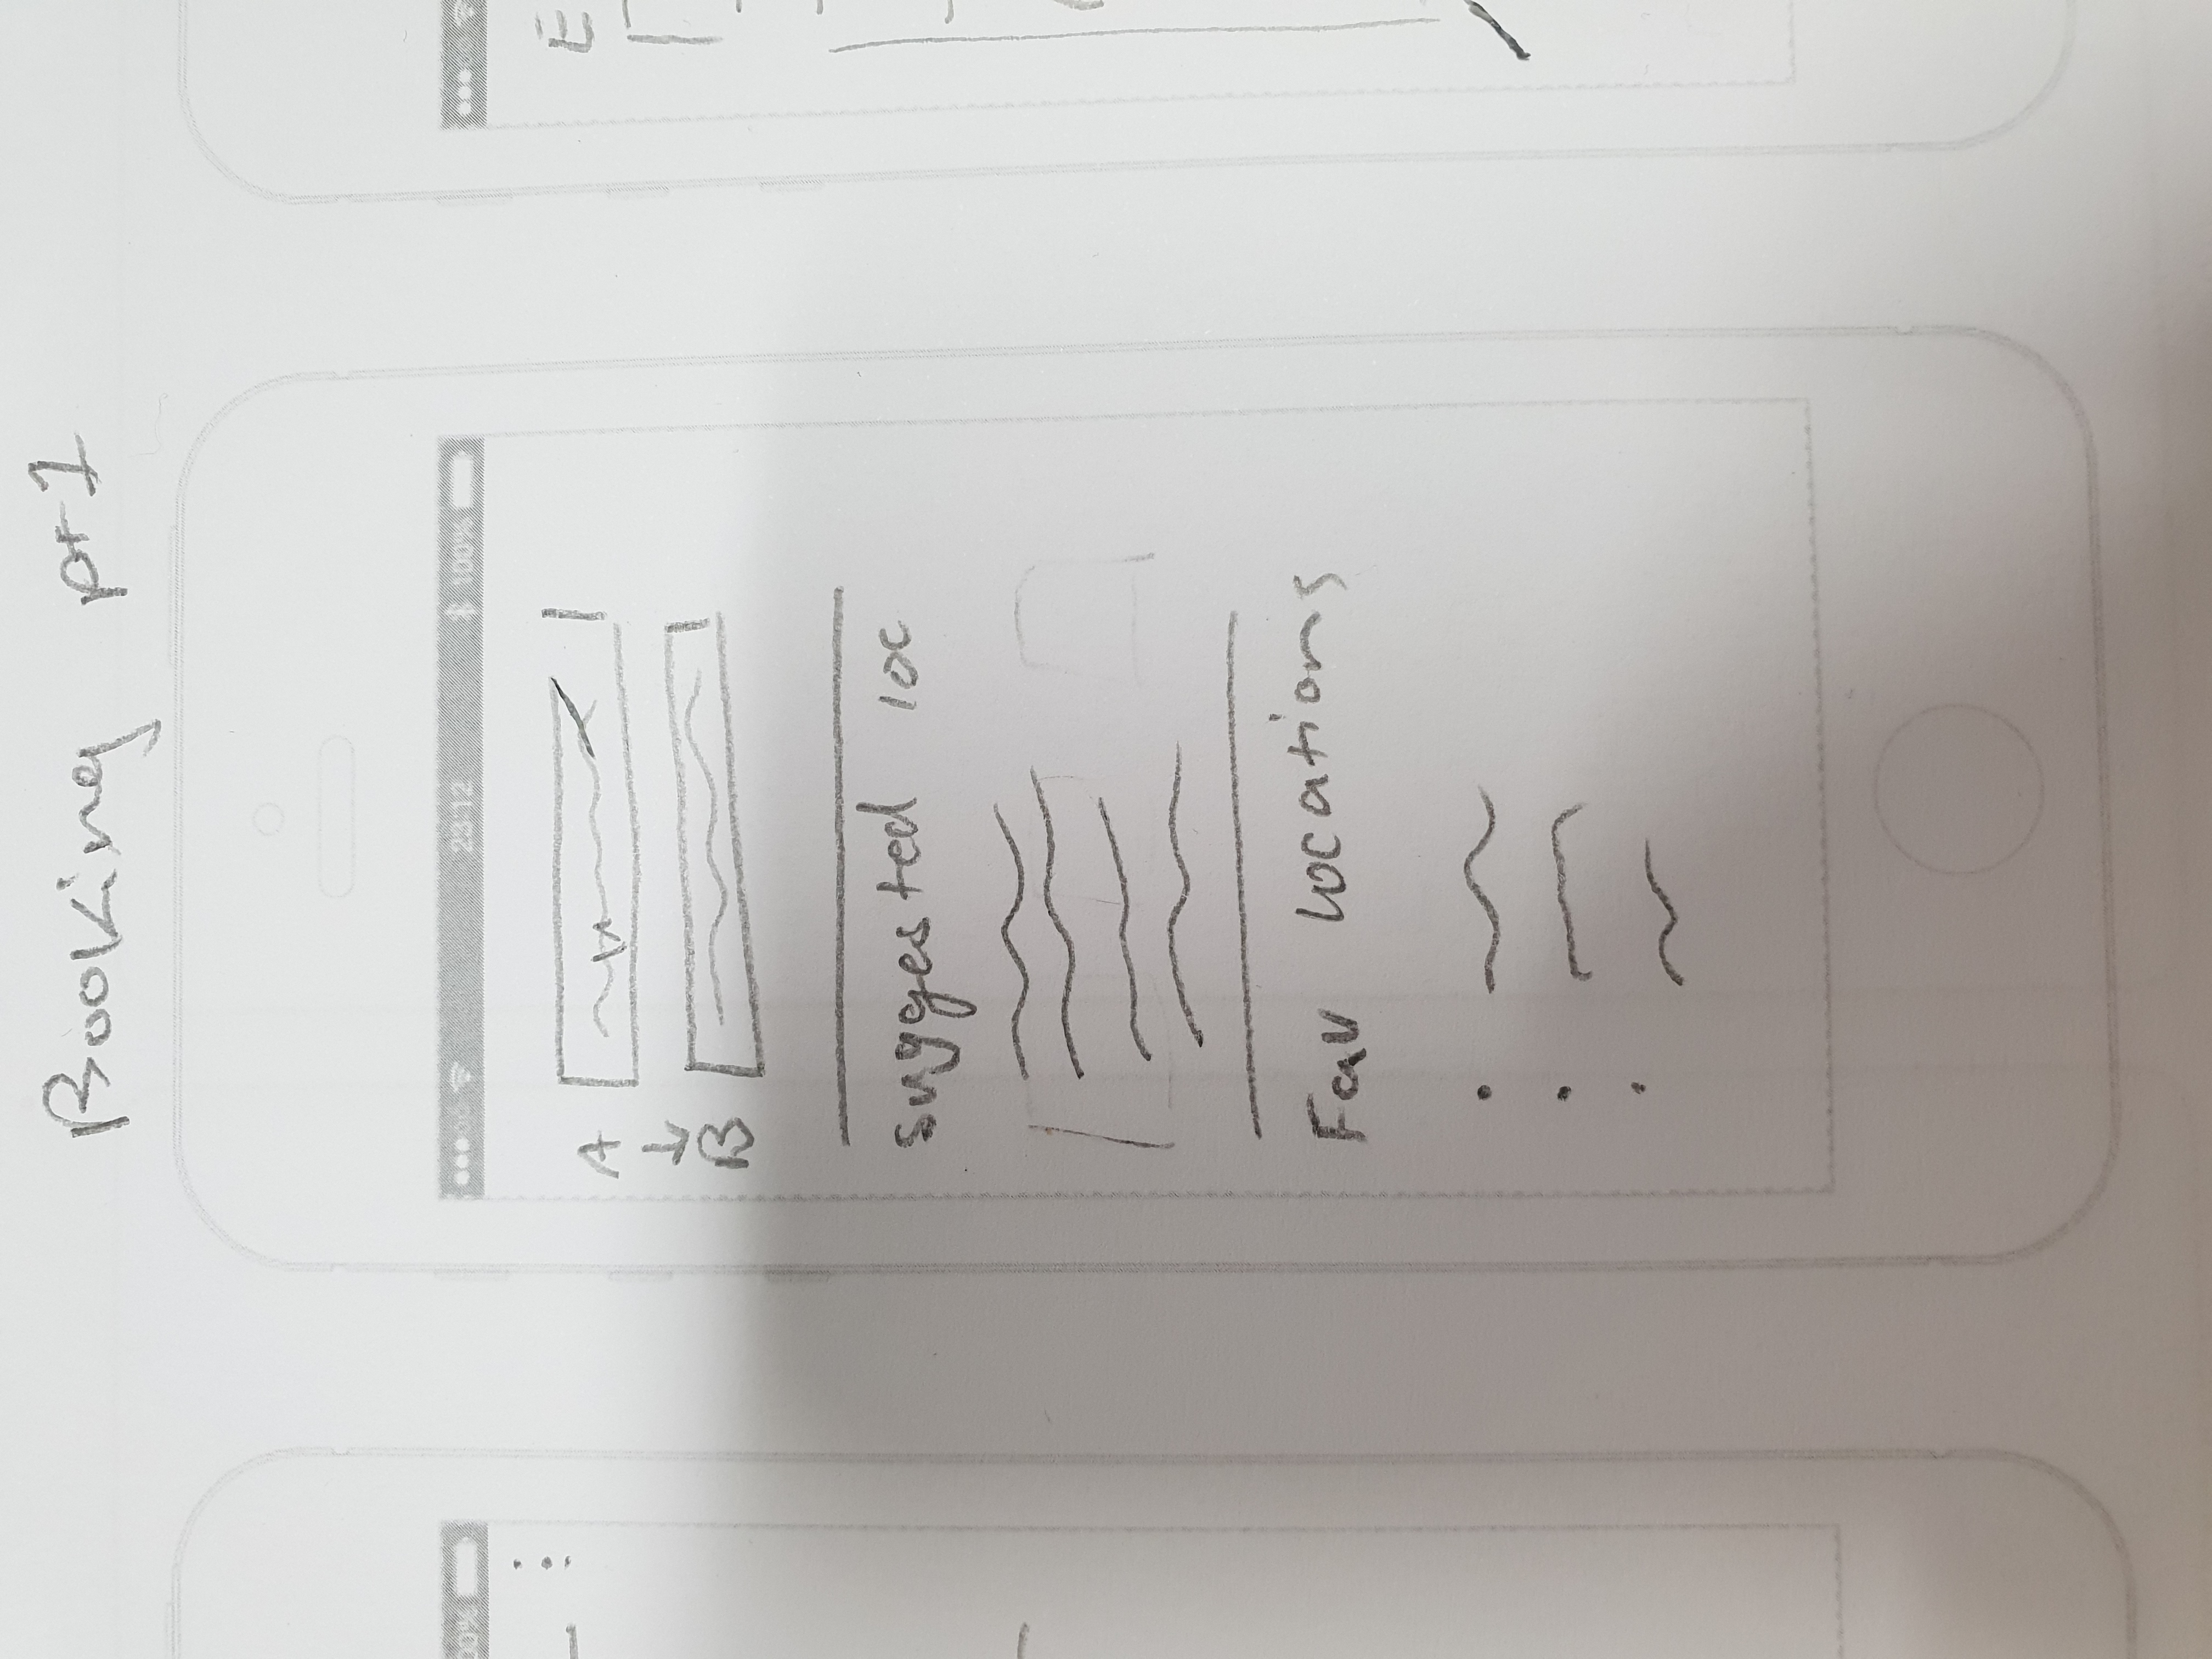 Booking pt 1
00%
23:12 100%
A
B
suggested loc
Fav locations
E